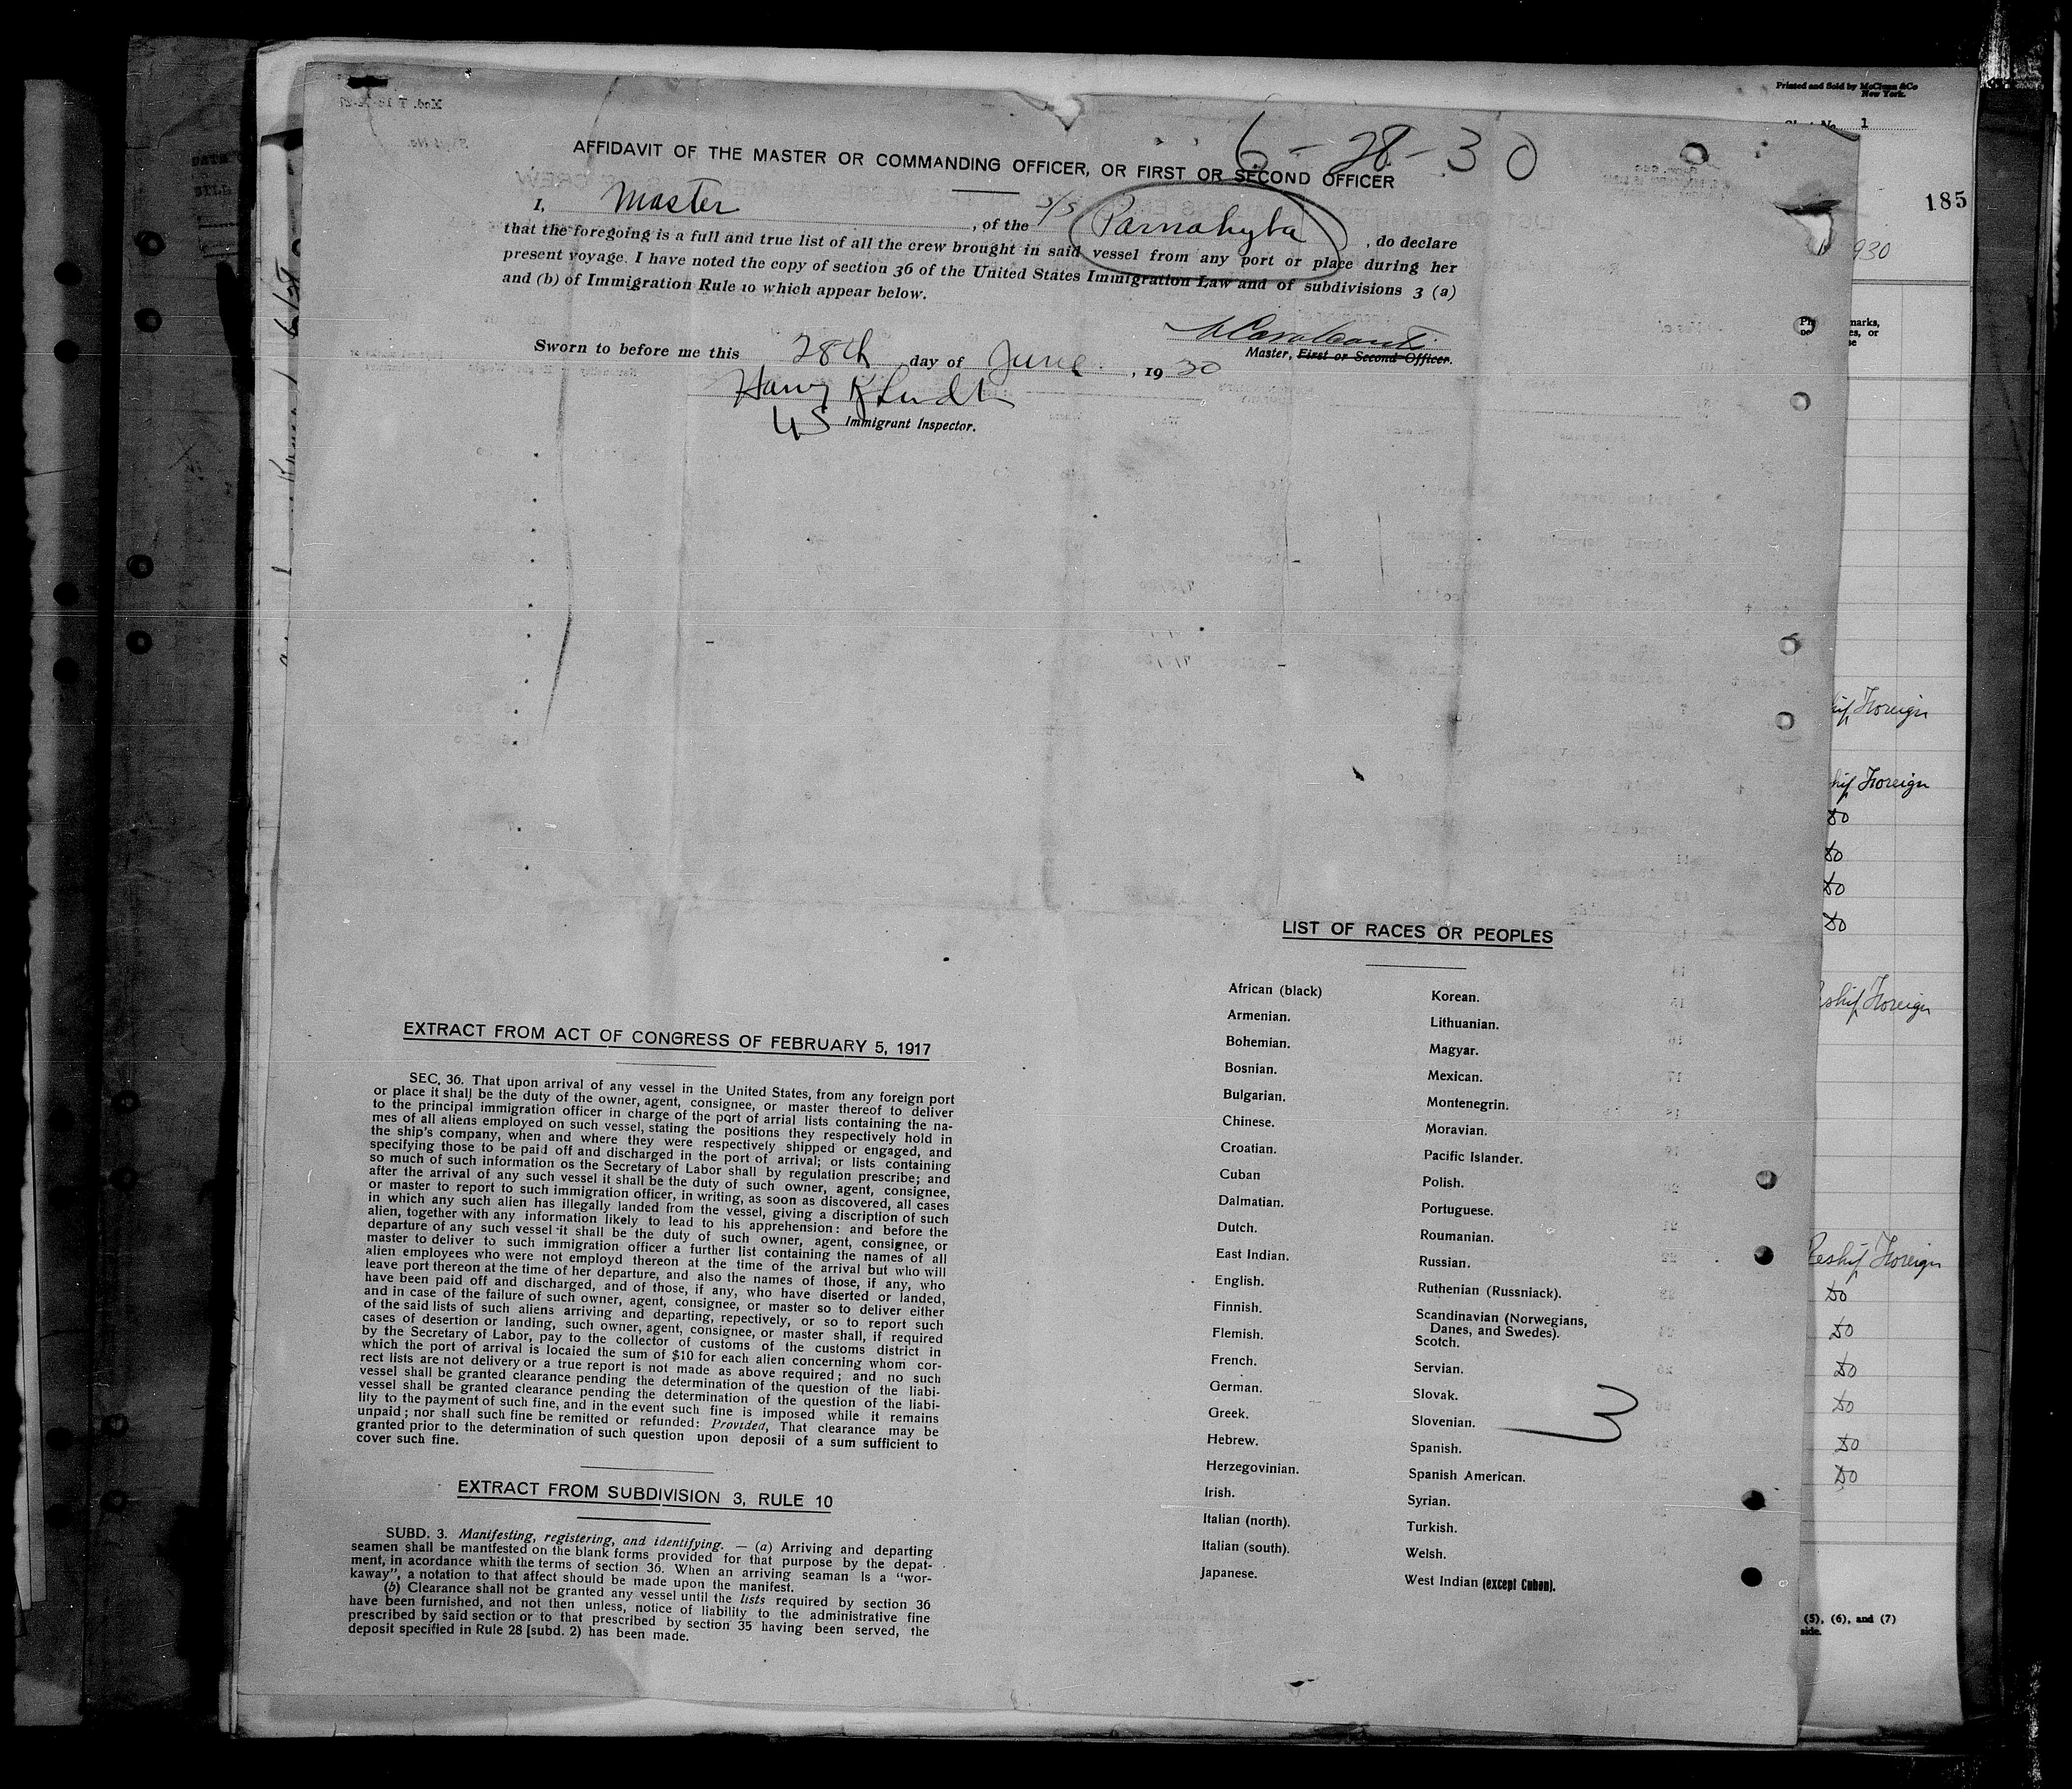 Printed and Sold by McClunn & Co
New York.
1
185
930
6-28-30
AFFIDAVIT OF THE MASTER OR COMMANDING OFFICER, OR FIRST OR SECOND OFFICER
I, Master, of the S/S Parnahyba, do declare
that the foregoing is a full and true list of all the crew brought in said vessel from any port or place during her
present voyage. I have noted the copy of section 36 of the United States Immigration Law and of subdivisions 3 (a)
and (b) of Immigration Rule 10 which appear below.
Master, First or Second Officer.
Sworn to before me this 28th day of June, 1930
Harry
US Immigrant Inspector.
EXTRACT FROM ACT OF CONGRESS OF FEBRUARY 5, 1917
SEC. 36. That upon arrival of any vessel in the United States, from any foreign port
or place it shall be the duty of the owner, agent, consignee, or master thereof to deliver
to the principal immigration officer in charge of the port of arrial lists containing the na-
mes of all aliens employed on such vessel, stating the positions they respectively hold in
the ship's company, when and where they were respectively shipped or engaged, and
specifying those to be paid off and discharged in the port of arrival; or lists containing
so much of such information os the Secretary of Labor shall by regulation prescribe; and
after the arrival of any such vessel it shall be the duty of such owner, agent, consignee,
or master to report to such immigration officer, in writing, as soon as discovered, all cases
in which any such alien has illegally landed from the vessel, giving a discription of such
alien, together with any information likely to lead to his apprehension: and before the
departure of any such vessel it shall be the duty of such owner, agent, consignee, or
master to deliver to such immigration officer a further list containing the names of all
alien employees who were not employd thereon at the time of the arrival but who will
leave port thereon at the time of her departure, and also the names of those, if any, who
have been paid off and discharged, and of those, if any, who have diserted or landed,
and in case of the failure of such owner, agent, consignee, or master so to deliver either
of the said lists of such aliens arriving and departing, repectively, or so to report such
cases of desertion or landing, such owner, agent, consignee, or master shall, if required
by the Secretary of Labor, pay to the collector of customs of the customs district in
which the port of arrival is locaied the sum of $10 for each alien concerning whom cor-
rect lists are not delivery or a true report is not made as above required; and no such
vessel shall be granted clearance pending the determination of the question of the liabi-
vessel shall be granted clearance pending the determination of the question of the liabi-
lity to the payment of such fine, and in the event such fine is imposed while it remains
unpaid; nor shall such fine be remitted or refunded: Provided, That clearance may be
granted prior to the determination of such question upon deposii of a sum sufficient to
cover such fine.
EXTRACT FROM SUBDIVISION 3, RULE 10
SUBD. 3. Manifesting, registering, and identifying. — (a) Arriving and departing
seamen shall be mantfested on the blank forms provided for that purpose by the depat-
ment, in acordance whith the terms of section 36. When an arriving seaman is a "wor-
kaway", a notation to that affect should be made upon the manifest.
(b) Clearance shall not be granted any vessel until the lists required by section 36
have been furnished, and not then unless, notice of liability to the administrative fine
prescribed by said section or to that prescribed by section 35 having been served, the
deposit specified in Rule 28 [subd. 2) has been made.
LIST OF RACES OR PEOPLES
African (black)
Armenian.
Bohemian.
Bosnian.
Bulgarian.
Chinese.
Croatian.
Cuban
Dalmatian.
Dutch.
East Indian.
English.
Finnish.
Flemish.
French.
German.
Greek.
Hebrew.
Herzegovinian.
Irish.
Italian (north).
Italian (south).
Japanese.
Korean.
Lithuanian.
Magyar.
Mexican.
Montenegrin.
Moravian.
Pacific Islander.
Polish.
Portuguese.
Roumanian.
Russian.
Ruthenian (Russniack).
Scandinavian (Norwegians,
Danes, and Swedes).
Scotch.
Servian.
Slovak.
Slovenian.
Spanish.
Spanish American.
Syrian.
Turkish.
Welsh.
West Indian (except Cuban).
3
Foreign
Foreign
Do
Do
Do
Do
Foreign
Reship Foreign
Do
Do
Do
Do
Do
Do
(5), (6), and (7)
side.